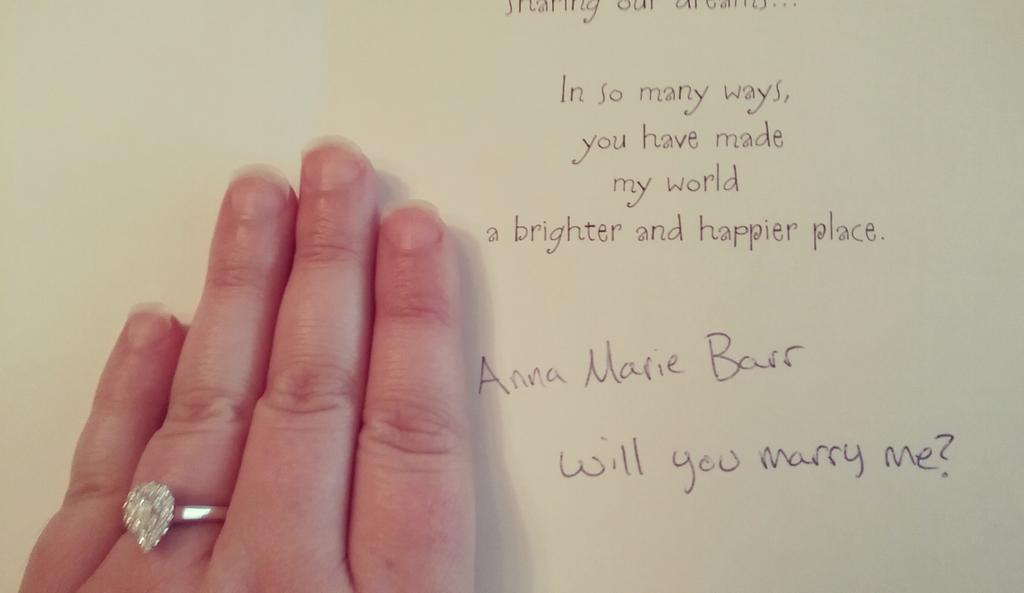 sharing our dreams...
In so many ways,
you have made
my world
a brighter and happier place.
Anna Marie Barr
will you marry me?